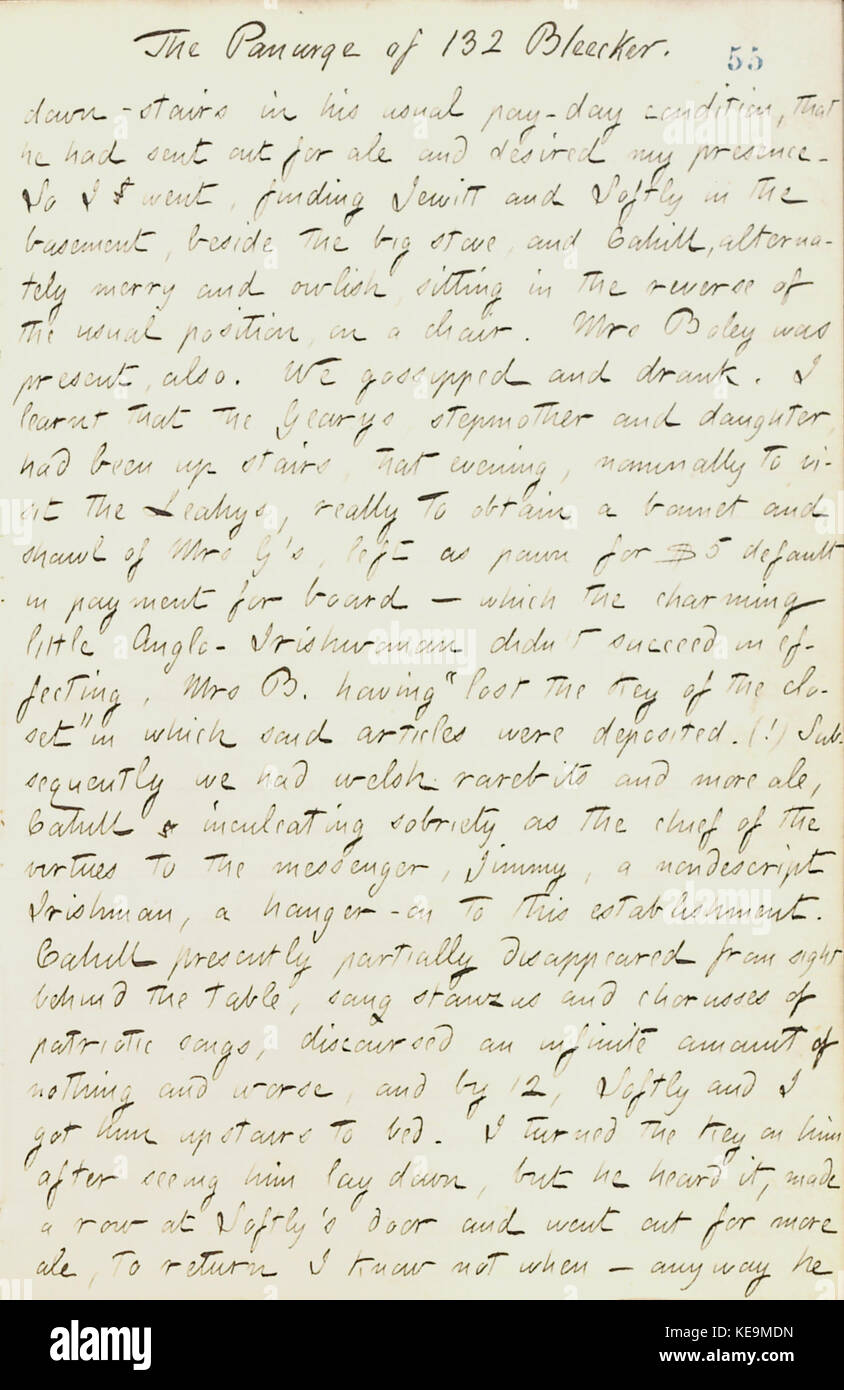 The Panurge of 132 Bleecker.
55
down-stairs in his usual pay-day condition, that
he had sent out for ale and desired my presence.
So I went, finding Jewitt and Softly in the
basement, beside the big stove, and Cahill, alterna-
tely merry and owlish, sitting in the reverse of
the usual position, on a chair. Mrs Boley was
present, also. We gossipped and drank. I
learnt that the Gearys, stepmother and daughter,
had been up stairs, that evening, nominally to vi-
sit the Leahys, really to obtain a bonnet and
shawl of Mrs G's, left as pawn for $5 default
in payment for board — which the charming
little Anglo-Irishwoman didn't succeed in ef-
fecting, Mrs B. having "lost the key of the clo-
set" in which said articles were deposited. (!) Sub-
sequently we had welsh rarebits and more ale,
Cahill inculcating sobriety as the chief of the
virtues to the messenger, Jimmy, a nondescript
Irishman, a hanger-on to this establishment.
Cahill presently partially disappeared from sight
behind the table, sang stanzas and chorusses of
patriotic songs, discoursed an infinite amount of
nothing and worse, and by 12, Softly and I
got him upstairs to bed. I turned the key on him
after seeing him lay down, but he heard it, made
a row at Softly's door and went out for more
ale, to return I know not when — anyway he
alamy
Image ID: KE9MDN
www.alamy.com